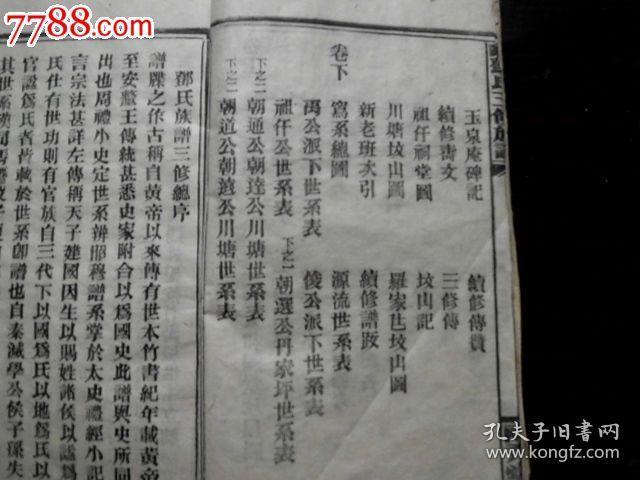 7788.com
玉泉庵碑記
續修壽文
祖仟祠堂圖
川塘坟山圖
新老班次引
續修傳贊
三修傳
坟山記
羅家㘰坟山圖
續修譜跋
卷下
寫系總圖
禹公派下世系表
祖仟公世系表
源流世系表
俊公派下世系表
下之一 朝選公丹家坪世系表
下之二 朝通公朝達公川塘世系表
下之三 朝道公朝遠公川塘世系表
鄧氏族譜三修總序
譜牒之依古稱自黃帝以來傳有世本竹書紀年載黃帝
至安釐王傳統甚悉史家附合以為國史此譜與史所同
出也周禮小史定世系辨昭穆譜系掌於太史禮經小記
言宗法甚詳左傳稱天子建國因生以賜姓諸侯以諡為
氏仕有世功則有官族自三代下以國爲氏以地爲氏以
官諡爲氏者皆載於世系卽譜也自秦滅學公侯子孫失
其世系
孔夫子旧书网